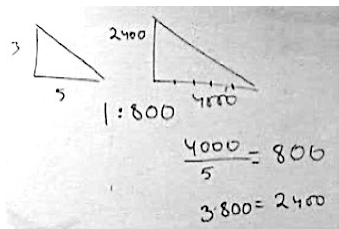 3
5
2400
4000
1:800
4000/5 = 800
3·800 = 2400